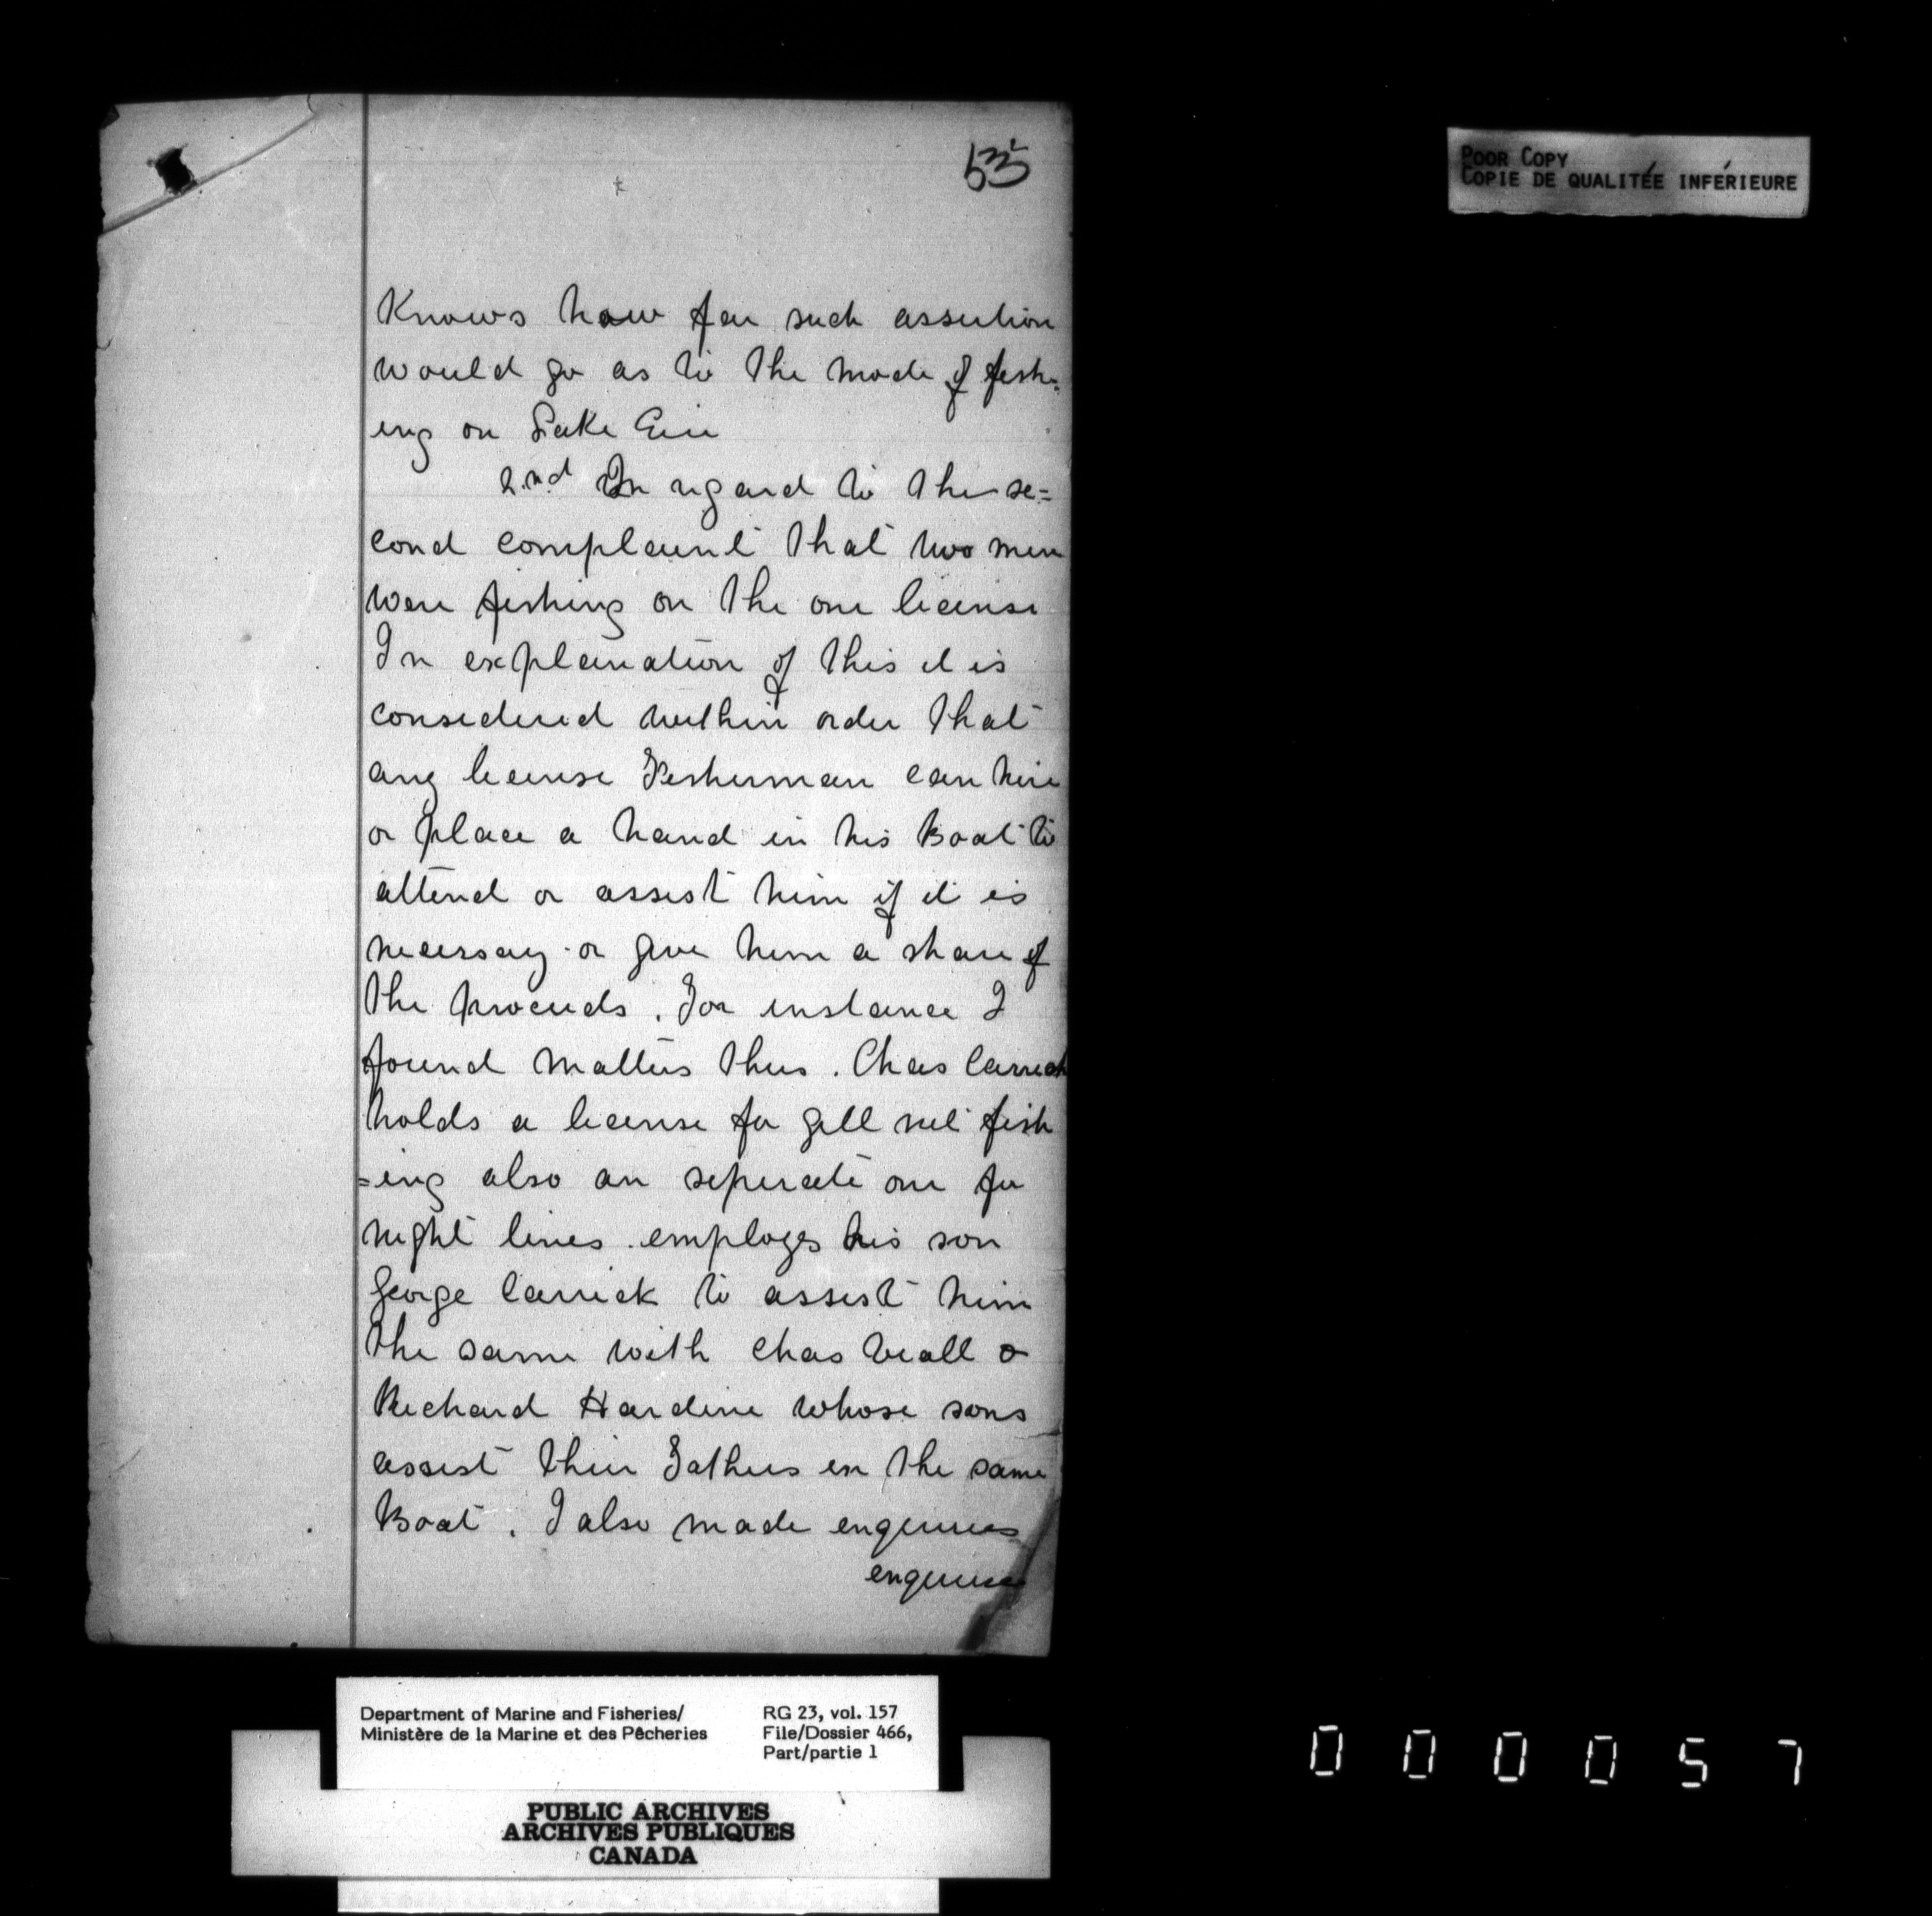 53
POOR COPY
COPIE DE QUALITÉE INFÉRIEURE
Knows how far such assertion
would go as to the mode of fish=
ing on Lake Erie
2nd In regard to the se=
cond complaint that two men
were fishing on the one license
In explanation of this it is
considered within order that
any license Fisherman can hire
or place a hand in his Boat to
attend or assist him if it is
necessary or give him a share of
the proceeds. For instance I
found matters thus. Chas Carrick
holds a license for gill net fish
=ing also an seperate one for
night lines. employes his son
George Carrick to assist him
the same with Chas &
Richard Hardine whose sons
assist their Fathers in the same
Boat. I also made enquiries
enquiries
Department of Marine and Fisheries/
Ministère de la Marine et des Pêcheries
RG 23, vol. 157
File/Dossier 466,
Part/partie 1
PUBLIC ARCHIVES
ARCHIVES PUBLIQUES
CANADA
000057